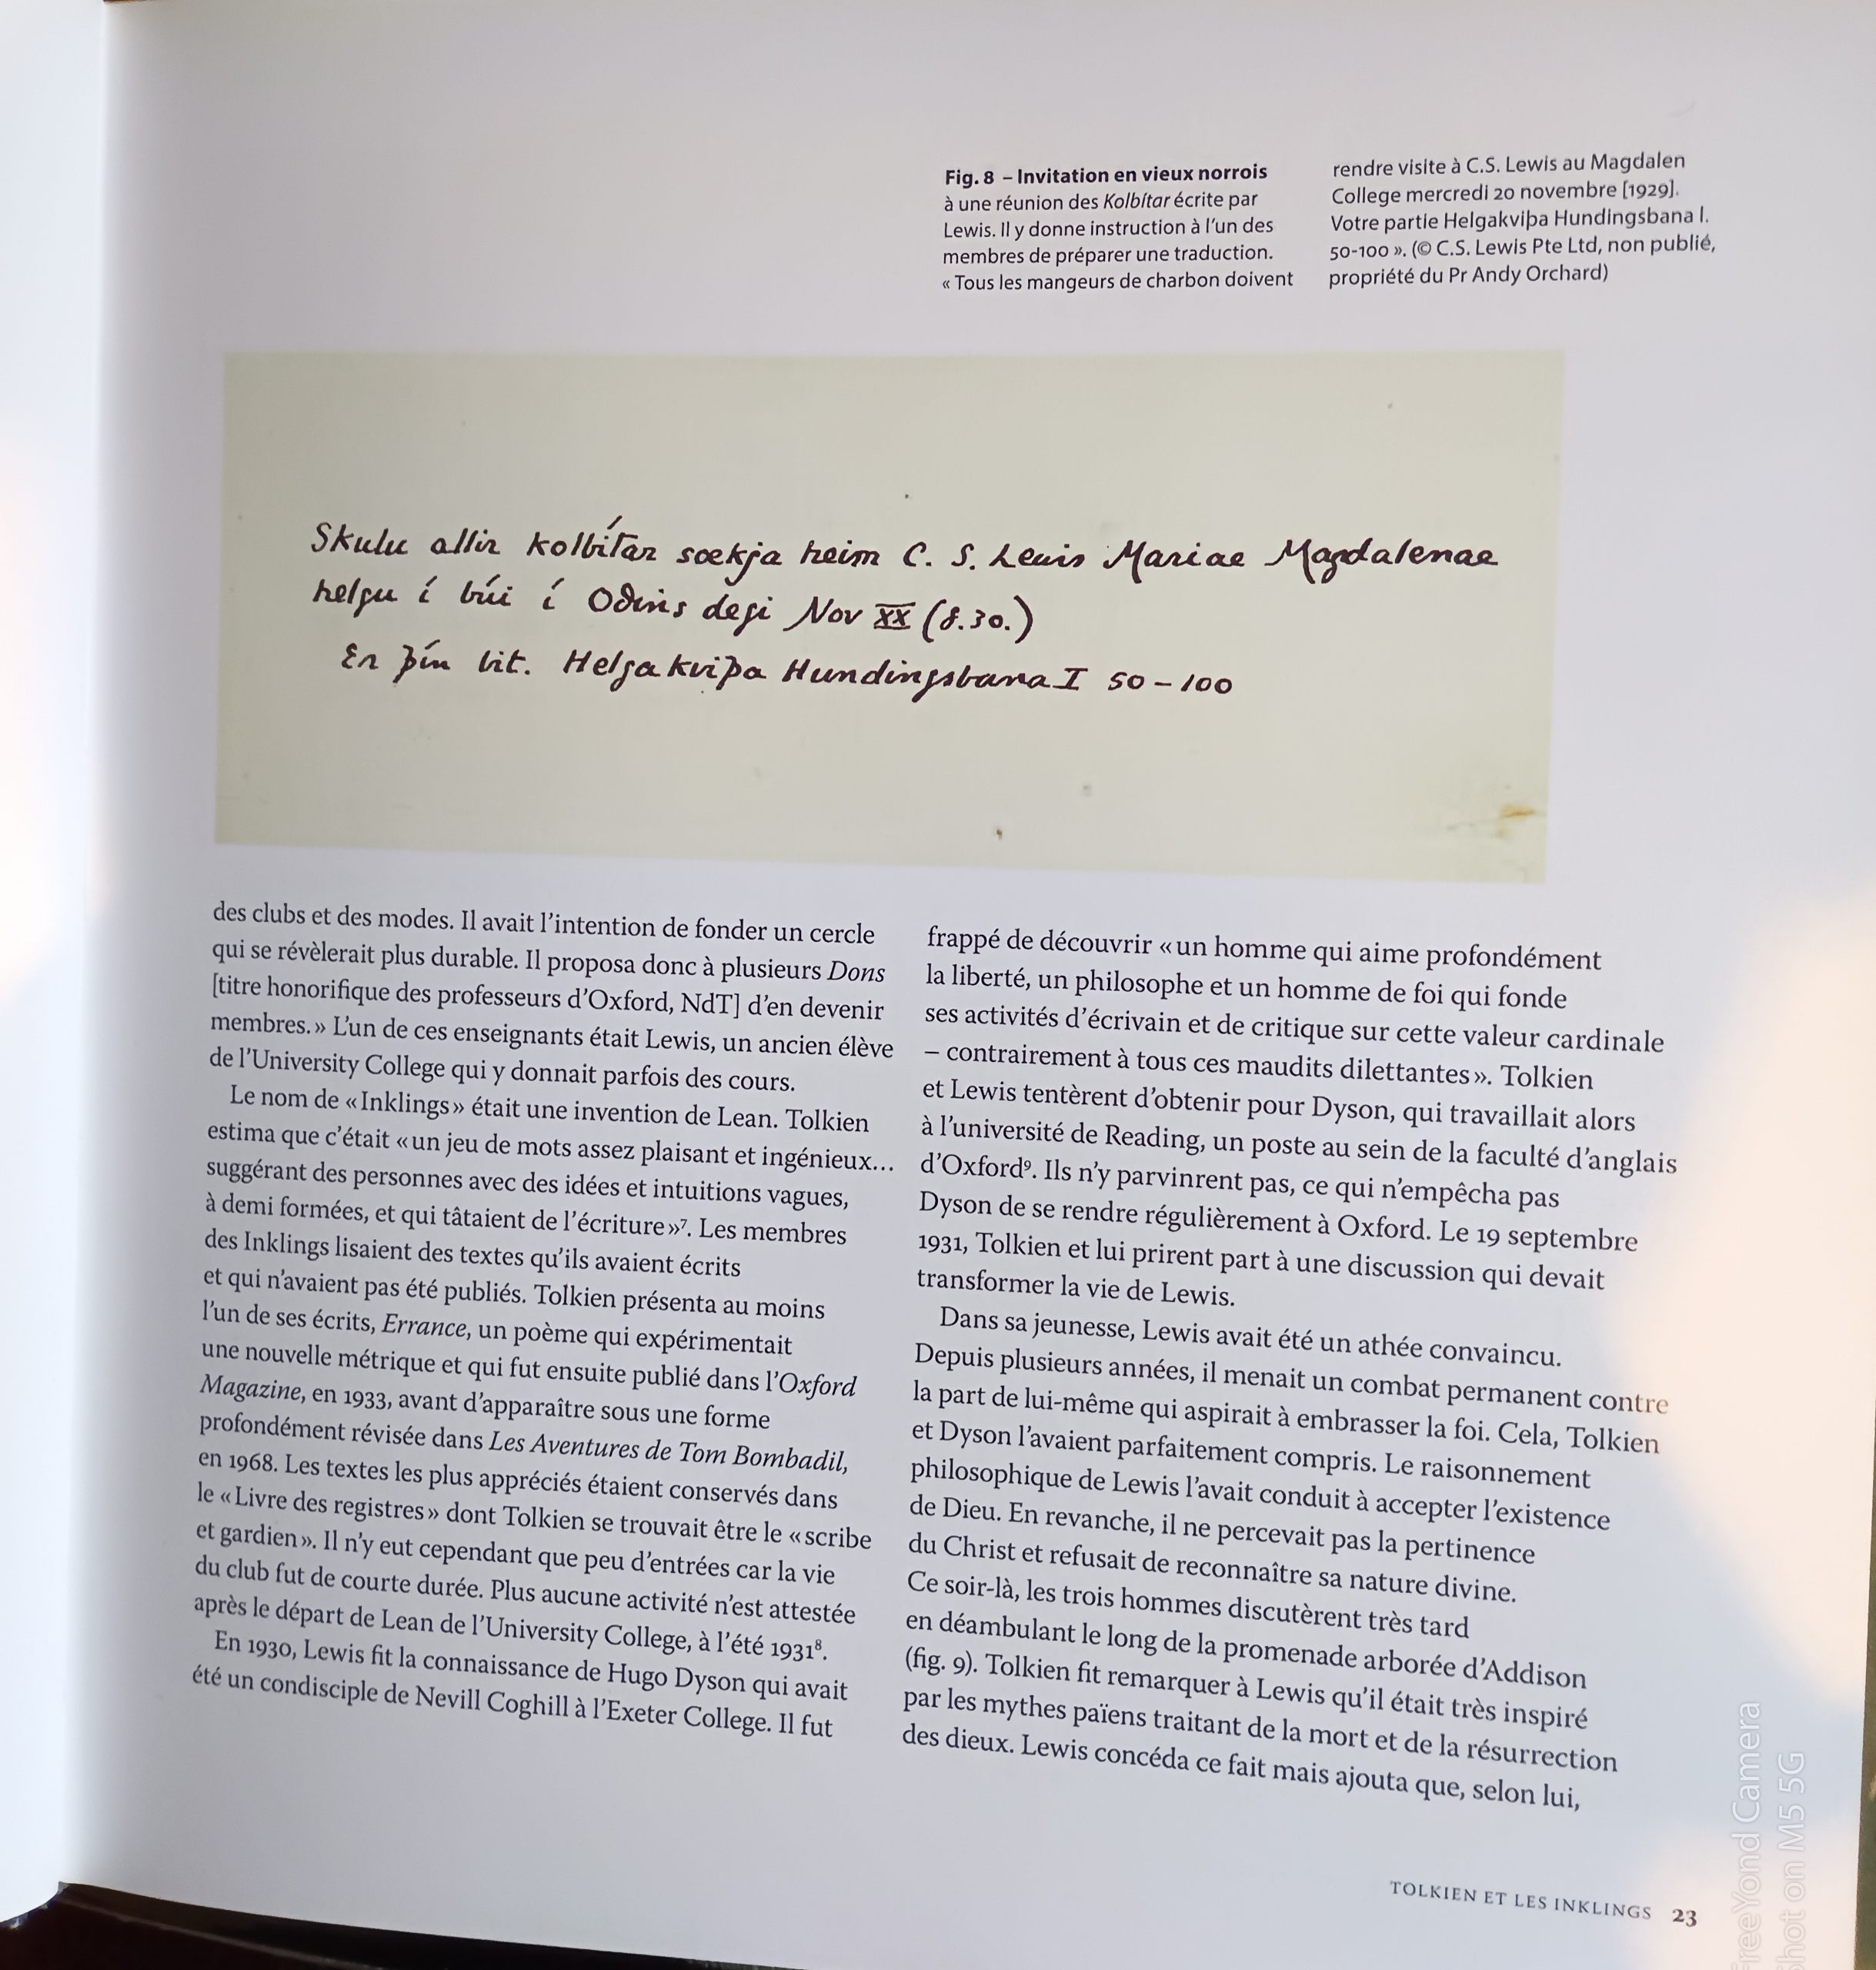 Fig. 8 – Invitation en vieux norrois
à une réunion des Kolbítar écrite par
Lewis. Il y donne instruction à l'un des
membres de préparer une traduction.
« Tous les mangeurs de charbon doivent
rendre visite à C.S. Lewis au Magdalen
College mercredi 20 novembre [1929].
Votre partie Helgakviþa Hundingsbana I.
50-100 ». (© C.S. Lewis Pte Ltd, non publié,
propriété du Pr Andy Orchard)
Skulu allir kolbítar soekja heim C. S. Lewis Mariae Magdalenae
helgu í búi í Oðins degi Nov XX (8.30.)
En þín lit. Helgakviþa Hundingsbana I 50–100
des clubs et des modes. Il avait l'intention de fonder un cercle
qui se révèlerait plus durable. Il proposa donc à plusieurs Dons
[titre honorifique des professeurs d'Oxford, NdT] d'en devenir
membres. » L'un de ces enseignants était Lewis, un ancien élève
de l'University College qui y donnait parfois des cours.
Le nom de « Inklings » était une invention de Lean. Tolkien
estima que c'était « un jeu de mots assez plaisant et ingénieux…
suggérant des personnes avec des idées et intuitions vagues,
à demi formées, et qui tâtaient de l'écriture »⁷. Les membres
des Inklings lisaient des textes qu'ils avaient écrits
et qui n'avaient pas été publiés. Tolkien présenta au moins
l'un de ses écrits, Errance, un poème qui expérimentait
une nouvelle métrique et qui fut ensuite publié dans l'Oxford
Magazine, en 1933, avant d'apparaître sous une forme
profondément révisée dans Les Aventures de Tom Bombadil,
en 1968. Les textes les plus appréciés étaient conservés dans
le « Livre des registres » dont Tolkien se trouvait être le « scribe
et gardien ». Il n'y eut cependant que peu d'entrées car la vie
du club fut de courte durée. Plus aucune activité n'est attestée
après le départ de Lean de l'University College, à l'été 1931⁸.
En 1930, Lewis fit la connaissance de Hugo Dyson qui avait
été un condisciple de Nevill Coghill à l'Exeter College. Il fut
frappé de découvrir « un homme qui aime profondément
la liberté, un philosophe et un homme de foi qui fonde
ses activités d'écrivain et de critique sur cette valeur cardinale
– contrairement à tous ces maudits dilettantes ». Tolkien
et Lewis tentèrent d'obtenir pour Dyson, qui travaillait alors
à l'université de Reading, un poste au sein de la faculté d'anglais
d'Oxford⁹. Ils n'y parvinrent pas, ce qui n'empêcha pas
Dyson de se rendre régulièrement à Oxford. Le 19 septembre
1931, Tolkien et lui prirent part à une discussion qui devait
transformer la vie de Lewis.
Dans sa jeunesse, Lewis avait été un athée convaincu.
Depuis plusieurs années, il menait un combat permanent contre
la part de lui-même qui aspirait à embrasser la foi. Cela, Tolkien
et Dyson l'avaient parfaitement compris. Le raisonnement
philosophique de Lewis l'avait conduit à accepter l'existence
de Dieu. En revanche, il ne percevait pas la pertinence
du Christ et refusait de reconnaître sa nature divine.
Ce soir-là, les trois hommes discutèrent très tard
en déambulant le long de la promenade arborée d'Addison
(fig. 9). Tolkien fit remarquer à Lewis qu'il était très inspiré
par les mythes païens traitant de la mort et de la résurrection
des dieux. Lewis concéda ce fait mais ajouta que, selon lui,
TOLKIEN ET LES INKLINGS 23
FreeYond Camera
Shot on M5 5G